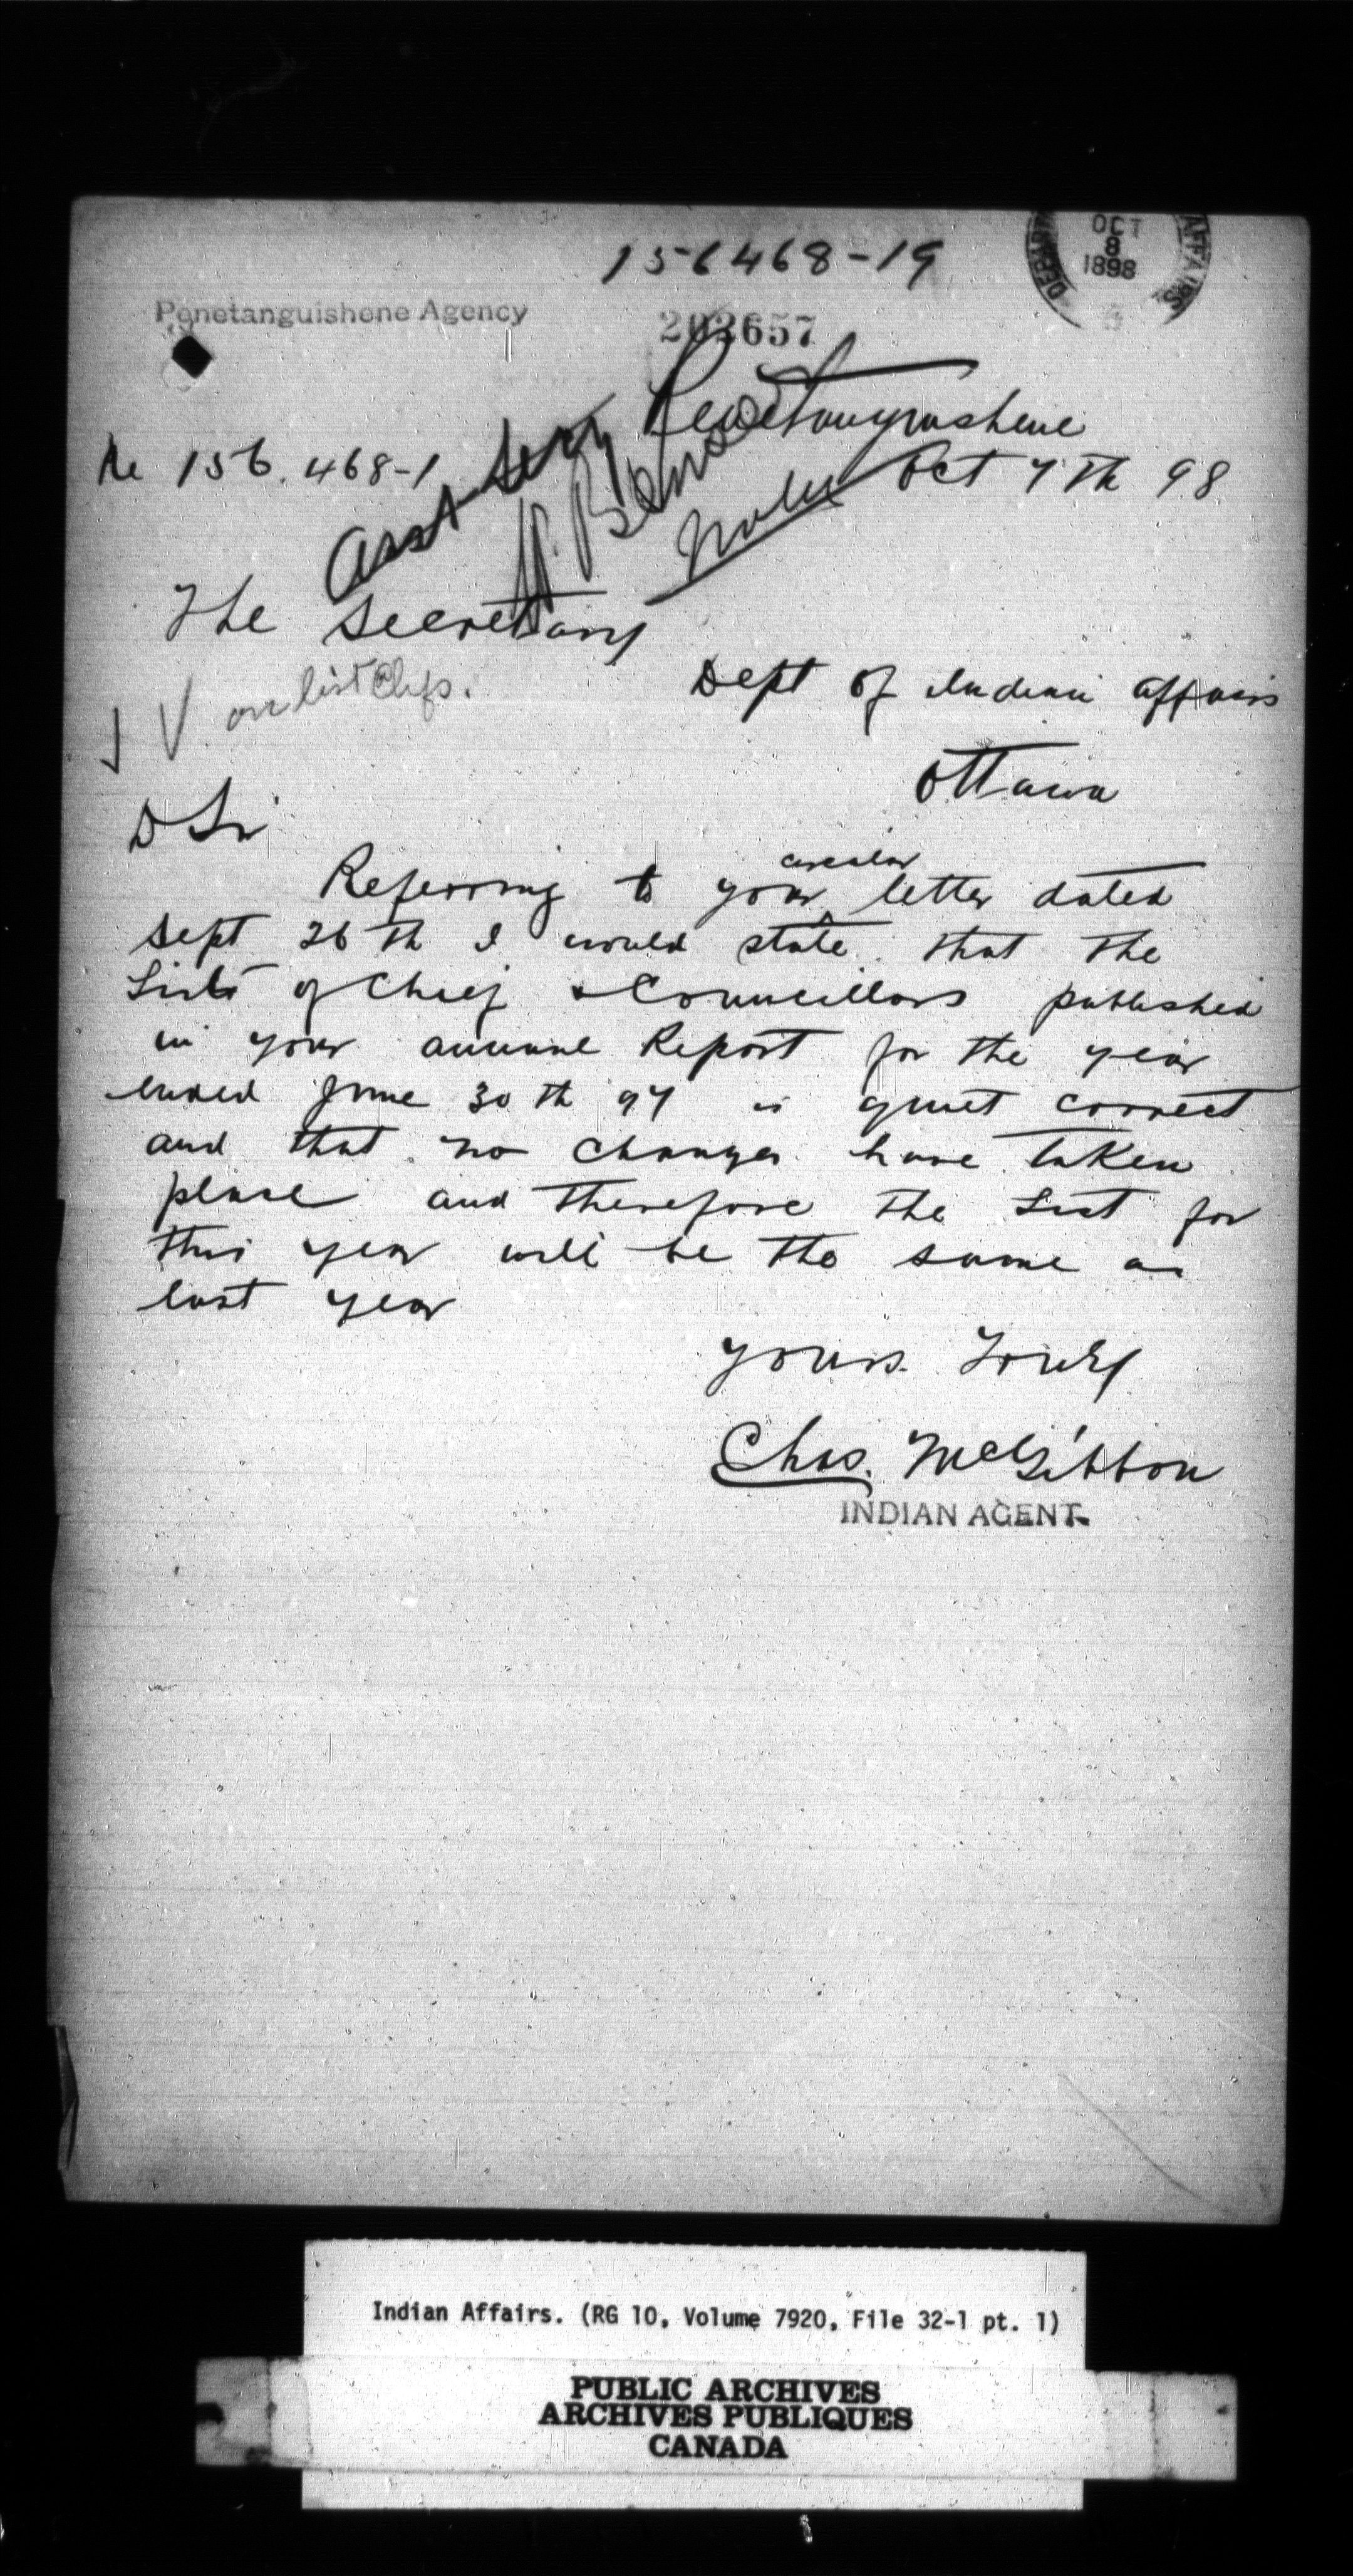 156468-19
DEPARTM AFFAIRS
OCT
8
1898
Penetanguishene Agency
202657
Penetanguishene
Re 156.468-1
Asst Secy
Oct 7th 98
The Secretary
on list Chfs.
Dept of Indian Affairs
Ottawa
D Sir
Referring to your circular letter dated
Sept 26th I would state that the
List of Chief & Councillors published
in your annual Report for the year
ended June 30th 97 is quiet correct
and that no changes have taken
place and therefore the List for
this year will be the same as
last year
Yours Truly
Chas. McGibbon
INDIAN AGENT.
Indian Affairs. (RG 10, Volume 7920, File 32-1 pt. 1)
PUBLIC ARCHIVES
ARCHIVES PUBLIQUES
CANADA